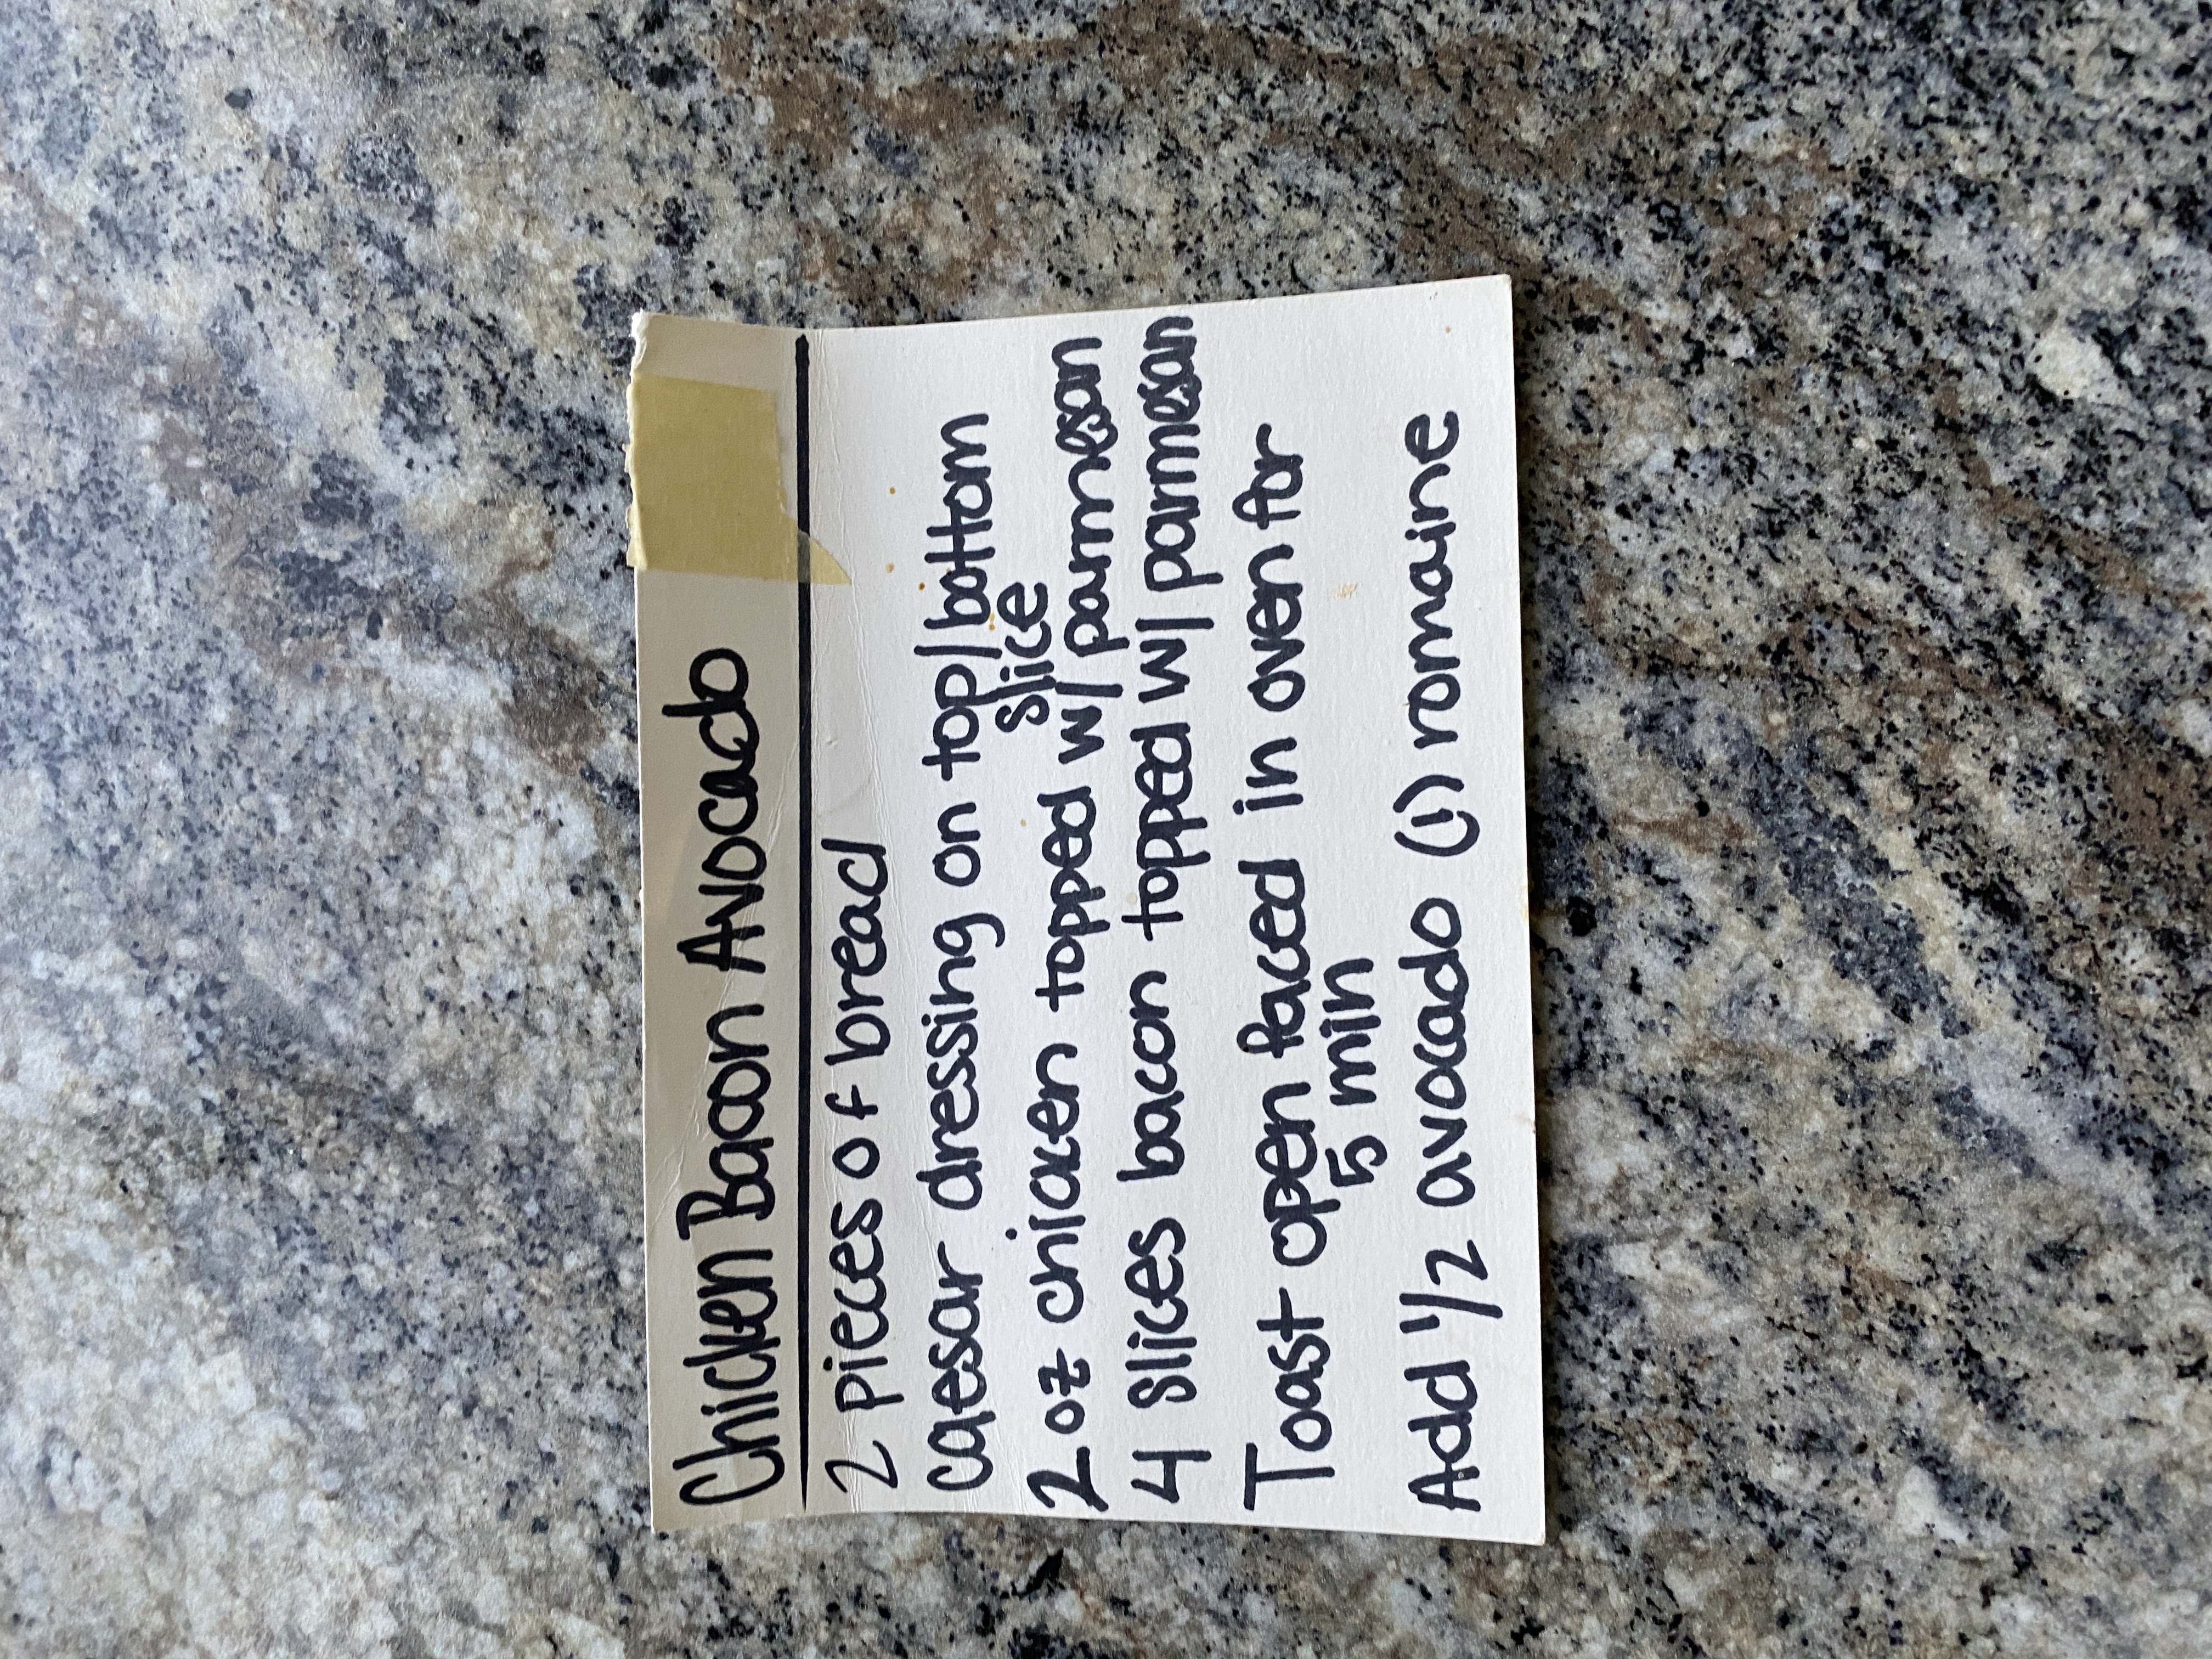 Chicken Bacon Avocado
2 pieces of bread
caesar dressing on top/bottom
slice
2 oz chicken topped w/ parmesan
4 slices bacon topped w/ parmesan
Toast open faced in oven for
5 min
Add 1/2 avocado (1) romaine